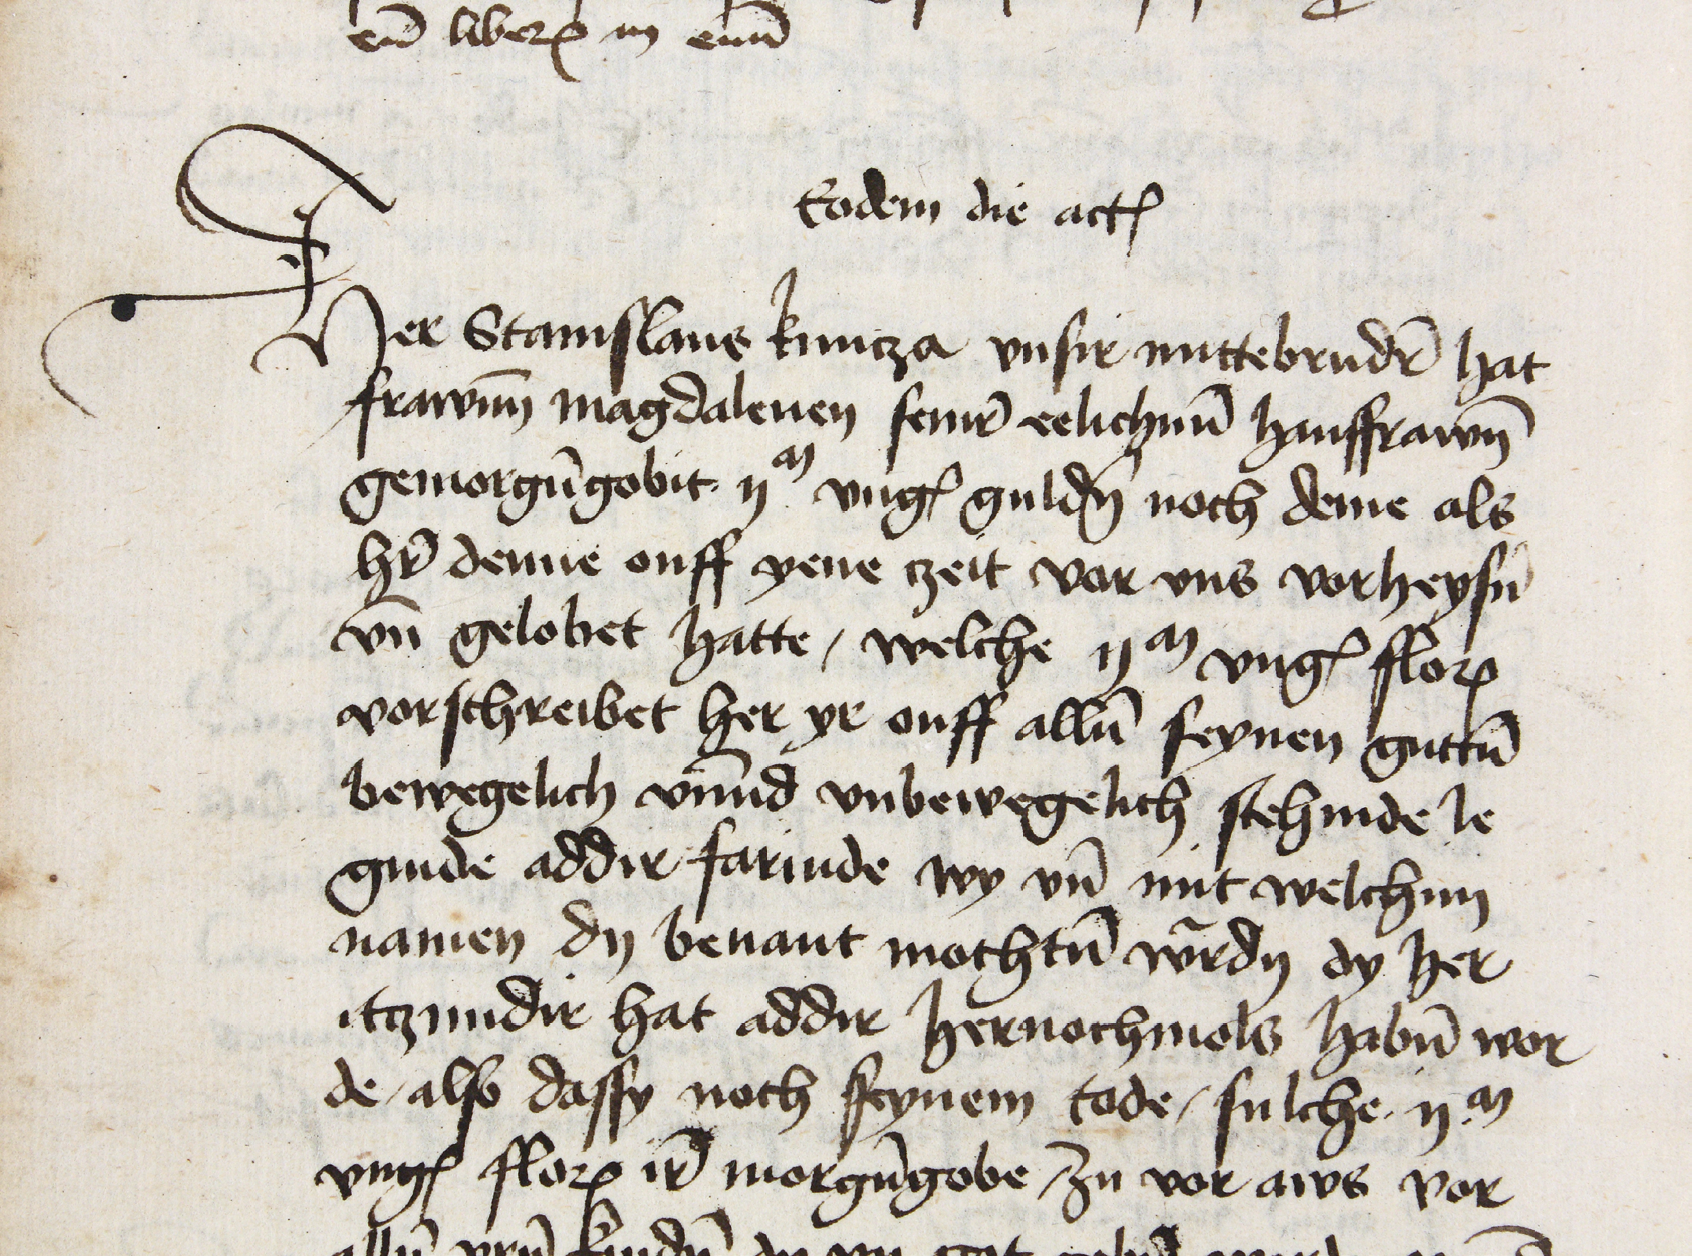 eñ liberꝝ in enim̄
Eodem die act
Her Stanislaus kuncza vnsir mittebrudr̄ hat
frawnn̄ magdalenen seinr̄ eelichnn̄ hausfrawn̄
gemorgūgobit ijᵐ vng guldn̄ noch deme als
hr̄ denne ouff yene czeit vor vns vorheysn̄
vn̄ gelobet hatte / welche ijᵐ vng florꝝ
vorschreibet her yr ouff alln̄ seynen guttn̄
bewegelich vnnd vnbewegelich stehinde le
ginde addir farinde wy vn̄ mit welchin
namen dy benant mochtn̄ wr̄dn dy her
itzundir hat addir hernochmols habn̄ wor
de / also dassy noch seynem tode / sulche ijᵐ
vng florꝝ ir̄ morgn̄gobe / zu vor aws vor
alln̄ yrn̄ kindn̄ dy yn got